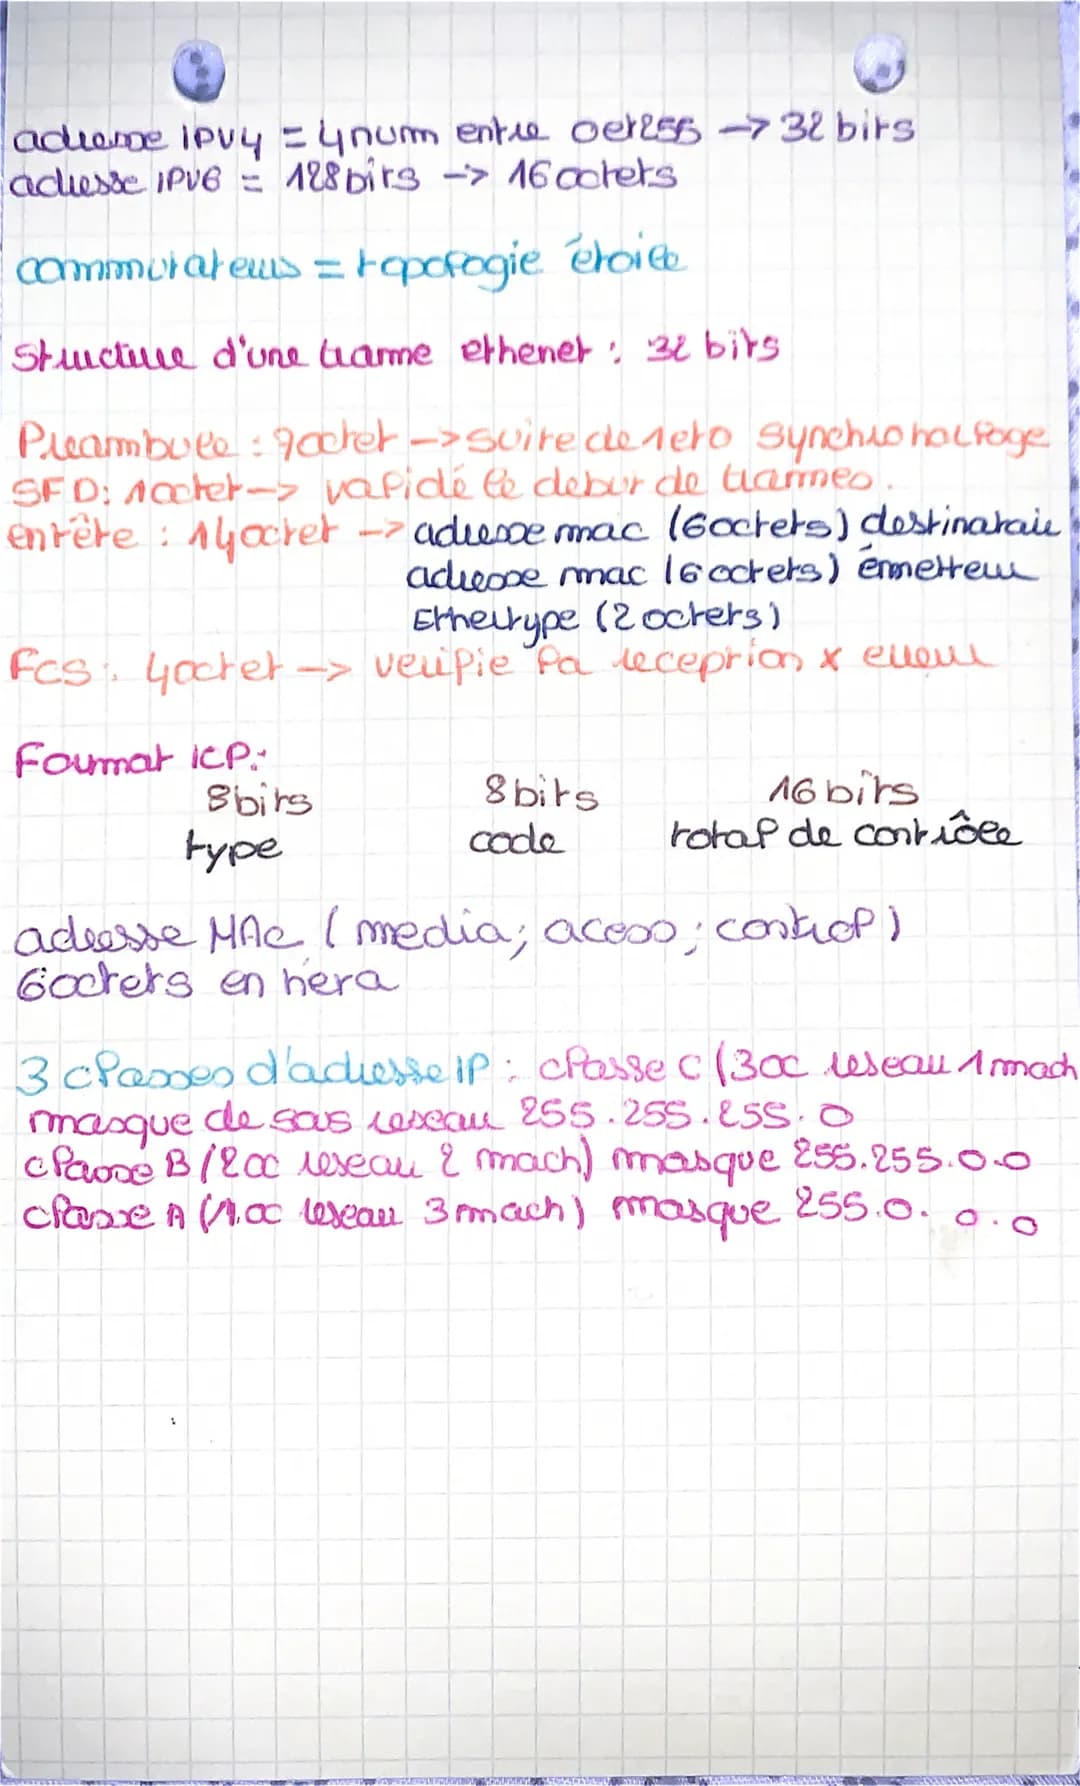 adresse IPV4 = 4 num entre 0 et 255 -> 32 bits
adresse IPV6 = 128 bits -> 16 octets
commutateurs = topologie étoile
Structure d'une trame ethenet : 32 bits
Preambule : 7octet -> suite de 1et0 synchro horloge
SFD: 1octet -> validé le debut de trames.
entête : 14octet -> adresse mac (6octets) destinataie
adresse mac (6 octets) émmetteur
Ethertype (2 octets)
Fcs : 4octet -> verifie la reception x erreur
Foumat ICP:
8bits 8bits 16 bits
type code total de contrôle
adresse MAC (media; acess; control)
6octets en hexa
3 classes d'adresse IP : classe C (3oc reseau 1 mach
masque de sous reseau 255.255.255.0
classe B (2oc reseau 2 mach) masque 255.255.0.0
classe A (1.oc reseau 3 mach) masque 255.0. 0.0